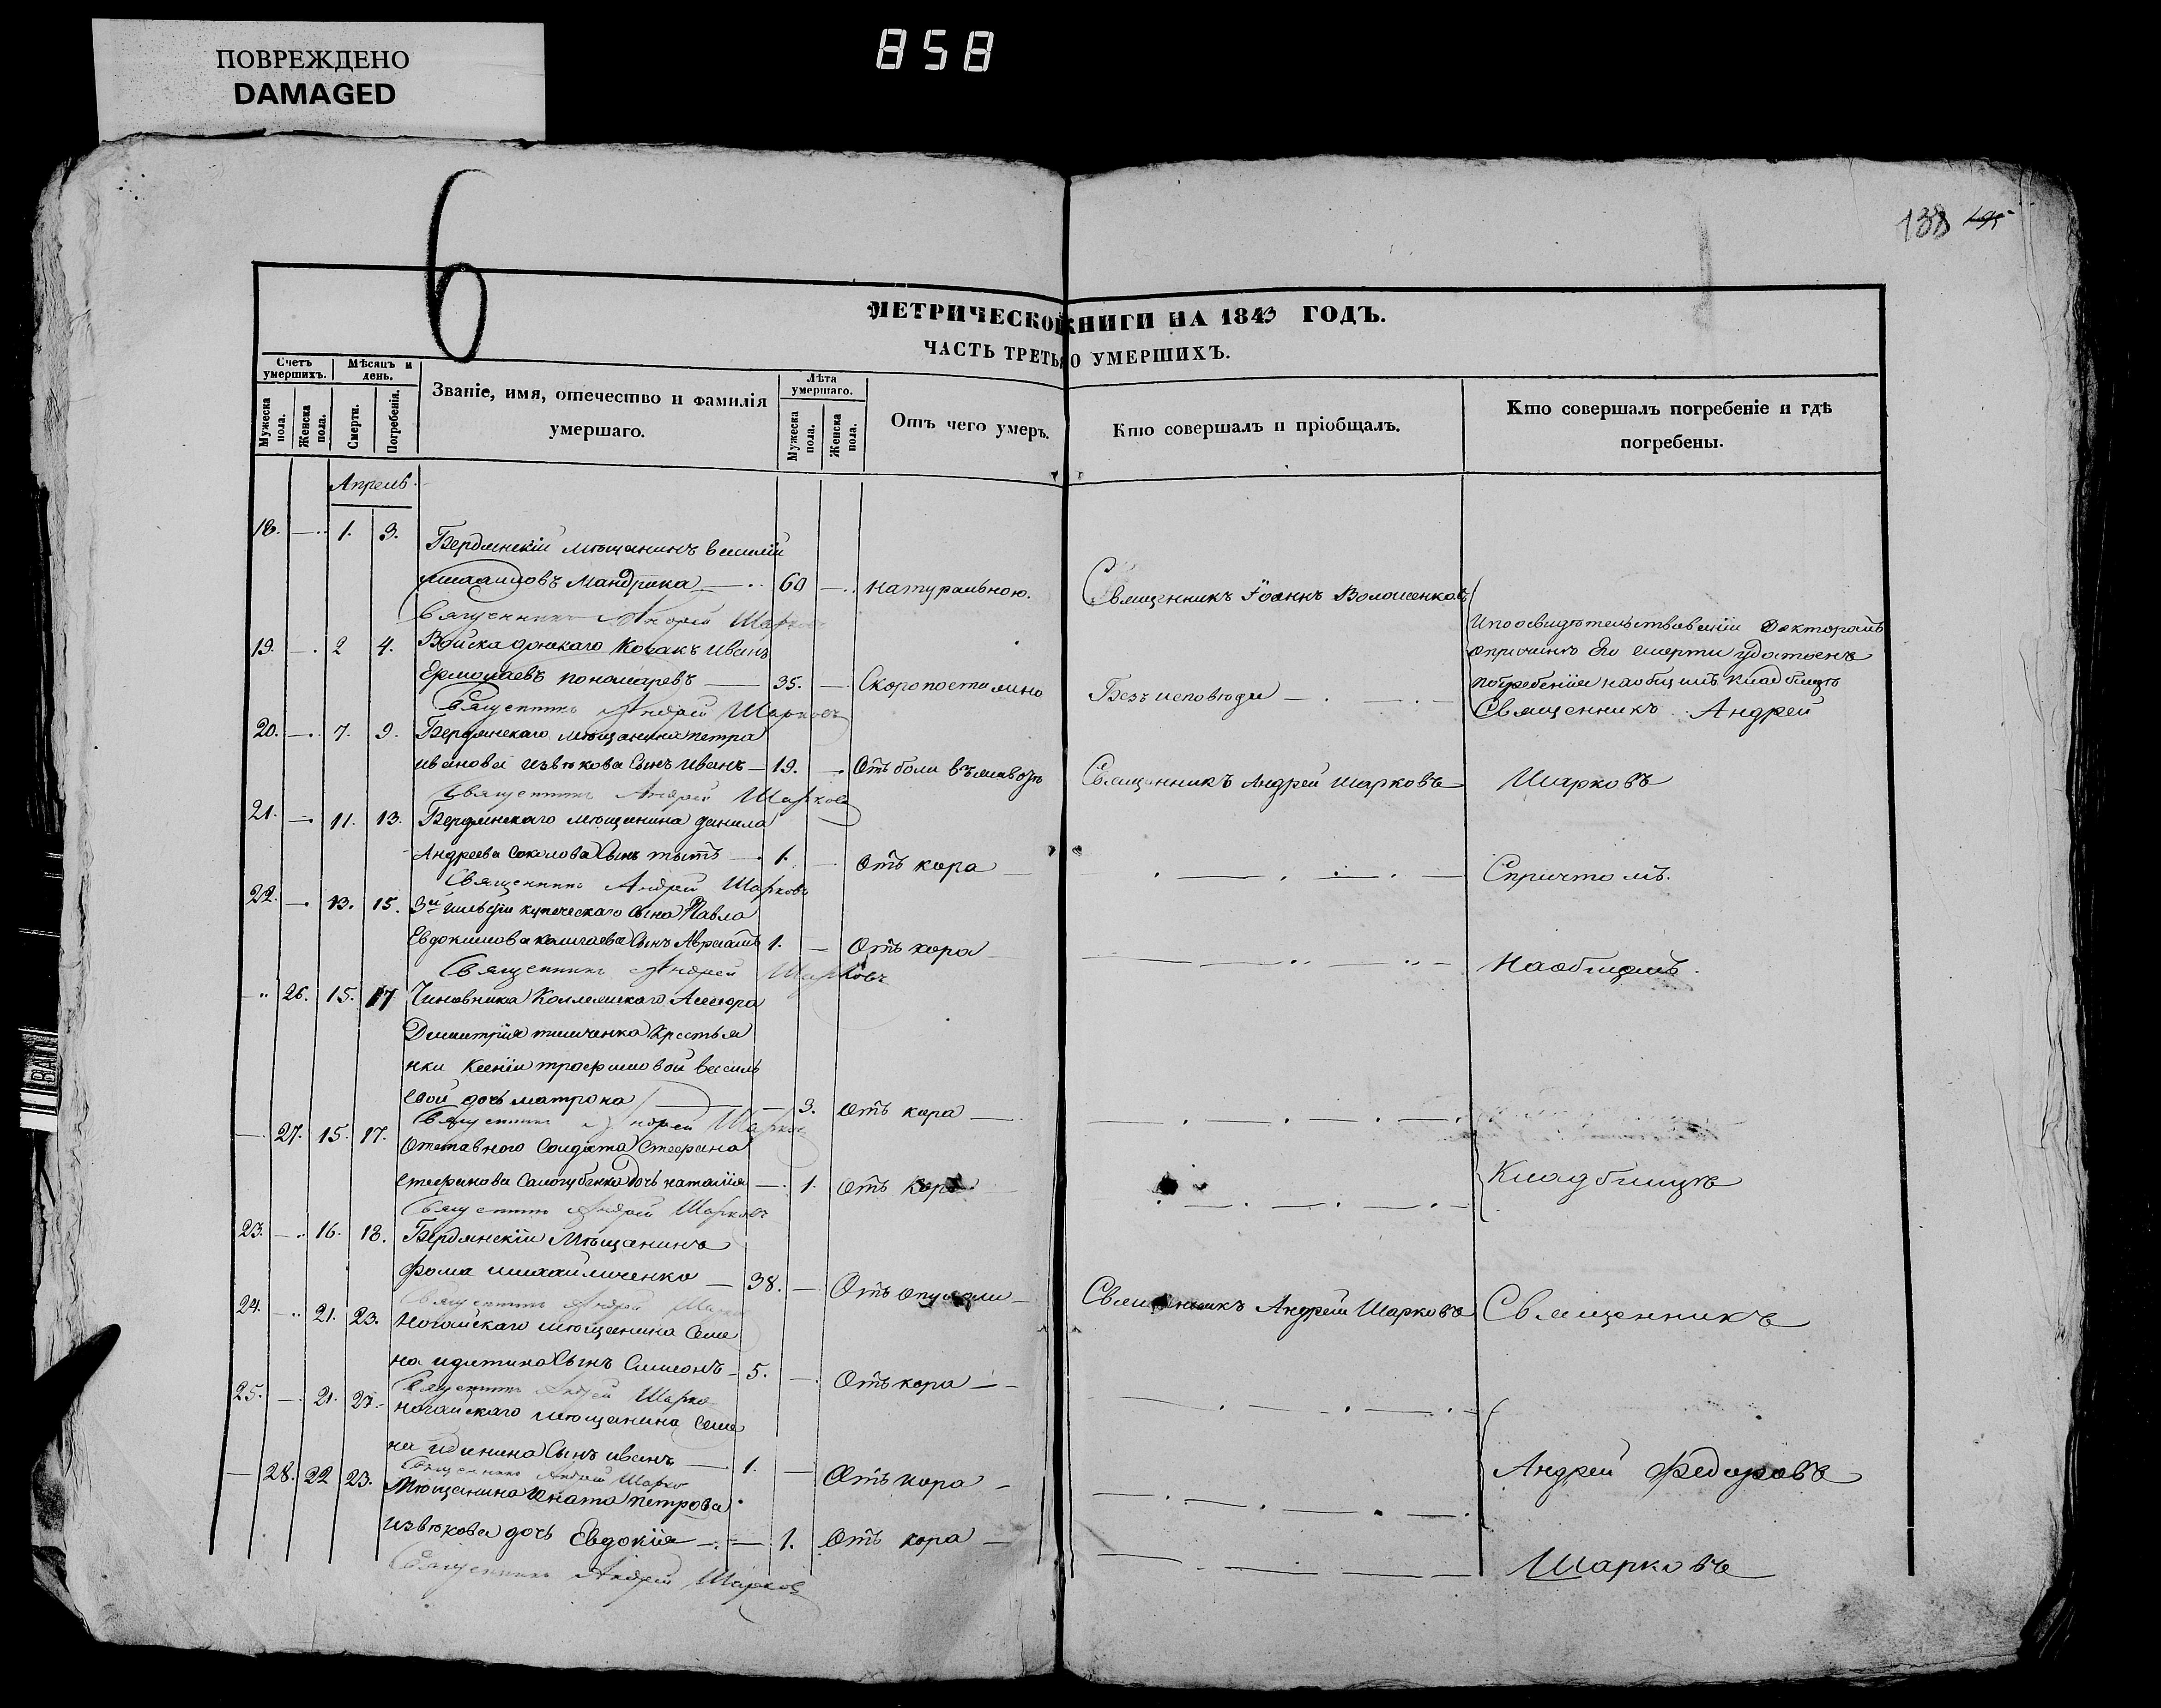 ПОВРЕЖДЕНО
DAMAGED
858
6
138
МЕТРИЧЕСКОЙ КНИГИ НА 1843 ГОДЪ.
ЧАСТЬ ТРЕТЬЯ О УМЕРШИХЪ.
Счетъ умершихъ.
Мужеска пола.
Женска пола.
Мѣсяцъ и день.
Смерти.
Погребенія.
Званіе, имя, отечество и фамилія
умершаго.
Лѣта умершаго.
Мужеска пола.
Женска пола.
Отъ чего умеръ.
Кто совершалъ и пріобщалъ.
Кто совершалъ погребеніе и гдѣ
погребены.
Апрель.
18. — 1. 3. Бердянскій мѣщанинъ василій
михаиловъ Мандрика — 60 — натуральною. Священникъ Іоаннъ Волошенковъ
Священникъ Андрей Шарковъ
19. — 2 4. Войска донскаго Козакъ иванъ
Ермолаевъ пономаревъ — 35. — Скоропостижно Безъ исповѣди —
Священникъ Андрей Шарковъ
Ипоосвидѣтельствованіи докторомъ
опричинѣ Его смерти удостоенъ
погребенія наобщемъ кладбищѣ
Священникъ Андрей
20. — 7. 9. Бердянскаго мѣщанина петра
иванова извѣкова Сынъ иванъ — 19. — Отъ боли въ Священникъ Андрей Шарковъ — Шарковъ
Священникъ Андрей Шарковъ
21. — 11. 13. Бердянскаго мѣщанина данила
Андреева соколова Сынъ — 1. — Отъ кора — Спричтомъ.
Священникъ Андрей Шарковъ
22. — 13. 15. 3й гильдіи купеческаго сына Павла
Евдокимова Сынъ Авраамъ 1. — Отъ кора — Наобщемъ.
Священникъ Андрей Шарковъ
— 26. 15. 17 Чиновника Коллежскаго Ассесора
Димитрія тимченка крестья
нки ксеніи трофимовой василь
евой дочь матрона — 3. отъ кора —
Священникъ Андрей Шарковъ
— 27. 15. 17. Отставного Солдата Стефана
стефанова Самогубенка дочь наталія — 1. отъ кора — Кладбищѣ
Священникъ Андрей Шарковъ
23. — 16. 18. Бердянскій Мѣщанинъ
Фома михайличенко — 38. — Отъ опухоли — Священникъ Андрей Шарковъ Священникъ
Священникъ Андрей
24. — 21. 23. Ногайскаго мѣщанина Семе
на Сынъ Симеонъ — 5. — Отъ кора —
Священникъ Андрей Шарко
25. — 21. 23. ногайскаго мѣщанина Семе
на Сынъ иванъ — 1. — Отъ кора — Андрей Федоровъ
Священникъ Андрей Шарко
— 28. 22 23. Мѣщанина петрова
извѣкова дочь Евдокія — 1. Отъ кора — Шарковъ
Священникъ Андрей Шарков